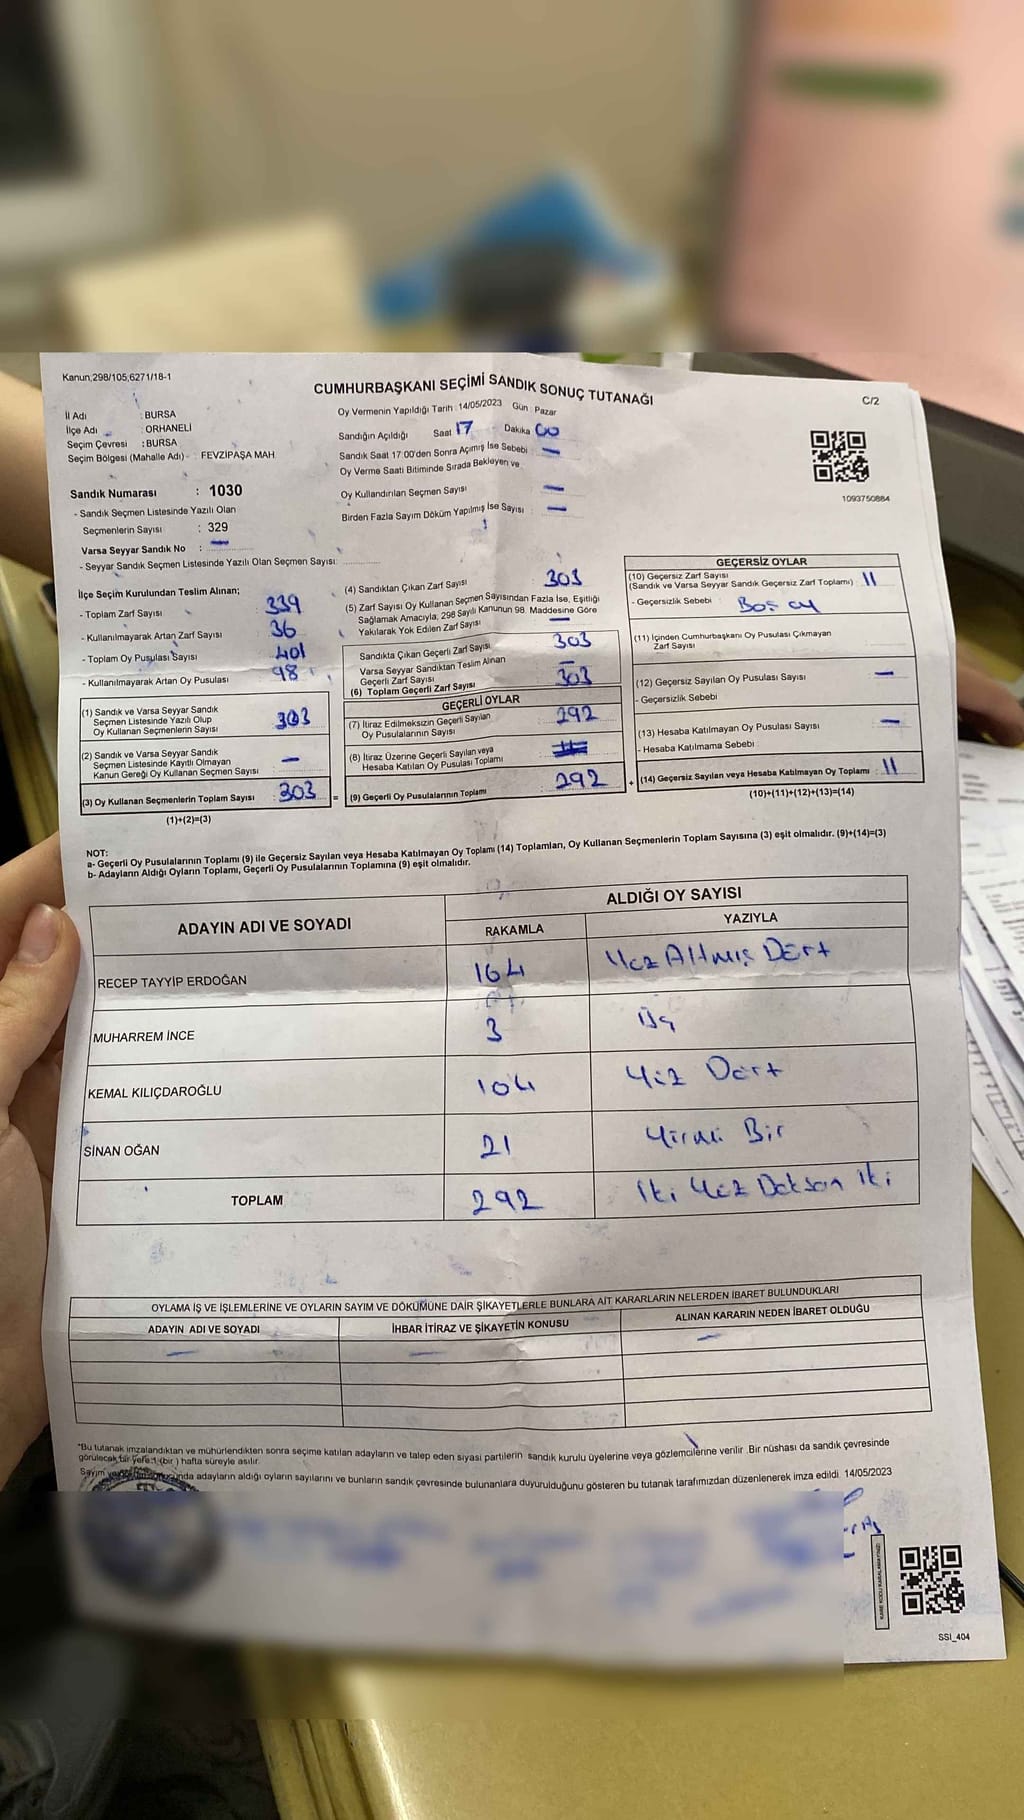 Kanun;298/105,6271/18-1
CUMHURBAŞKANI SEÇİMİ SANDIK SONUÇ TUTANAĞI
C/2
İl Adı : BURSA
İlçe Adı : ORHANELİ
Seçim Çevresi : BURSA
Seçim Bölgesi (Mahalle Adı) - FEVZİPAŞA MAH.
Oy Vermenin Yapıldığı Tarih : 14/05/2023 Gün : Pazar
Sandığın Açıldığı Saat 17 Dakika 00
Sandık Saat 17:00'den Sonra Açılmış İse Sebebi : —
Oy Verme Saati Bitiminde Sırada Bekleyen ve
Oy Kullandırılan Seçmen Sayısı —
Birden Fazla Sayım Döküm Yapılmış İse Sayısı : —
1093750884
Sandık Numarası : 1030
- Sandık Seçmen Listesinde Yazılı Olan
Seçmenlerin Sayısı : 329
Varsa Seyyar Sandık No : —
- Seyyar Sandık Seçmen Listesinde Yazılı Olan Seçmen Sayısı:
İlçe Seçim Kurulundan Teslim Alınan;
- Toplam Zarf Sayısı 339
- Kullanılmayarak Artan Zarf Sayısı 36
- Toplam Oy Pusulası Sayısı 401
- Kullanılmayarak Artan Oy Pusulası 98
(1) Sandık ve Varsa Seyyar Sandık
Seçmen Listesinde Yazılı Olup
Oy Kullanan Seçmenlerin Sayısı 303
(2) Sandık ve Varsa Seyyar Sandık
Seçmen Listesinde Kayıtlı Olmayan
Kanun Gereği Oy Kullanan Seçmen Sayısı —
(3) Oy Kullanan Seçmenlerin Toplam Sayısı 303 =
(1)+(2)=(3)
(4) Sandıktan Çıkan Zarf Sayısı 303
(5) Zarf Sayısı Oy Kullanan Seçmen Sayısından Fazla İse, Eşitliği
Sağlamak Amacıyla; 298 Sayılı Kanunun 98. Maddesine Göre
Yakılarak Yok Edilen Zarf Sayısı —
Sandıkta Çıkan Geçerli Zarf Sayısı 303
Varsa Seyyar Sandıktan Teslim Alınan
Geçerli Zarf Sayısı —
(6) Toplam Geçerli Zarf Sayısı 303
GEÇERLİ OYLAR
(7) İtiraz Edilmeksizin Geçerli Sayılan
Oy Pusulalarının Sayısı 292
(8) İtiraz Üzerine Geçerli Sayılan veya
Hesaba Katılan Oy Pusulası Toplamı
(9) Geçerli Oy Pusulalarının Toplamı 292 +
GEÇERSİZ OYLAR
(10) Geçersiz Zarf Sayısı
(Sandık ve Varsa Seyyar Sandık Geçersiz Zarf Toplamı) : 11
- Geçersizlik Sebebi : Boş oy
(11) İçinden Cumhurbaşkanı Oy Pusulası Çıkmayan
Zarf Sayısı
(12) Geçersiz Sayılan Oy Pusulası Sayısı —
- Geçersizlik Sebebi
(13) Hesaba Katılmayan Oy Pusulası Sayısı —
- Hesaba Katılmama Sebebi
(14) Geçersiz Sayılan veya Hesaba Katılmayan Oy Toplamı : 11
(10)+(11)+(12)+(13)=(14)
NOT:
a- Geçerli Oy Pusulalarının Toplamı (9) ile Geçersiz Sayılan veya Hesaba Katılmayan Oy Toplamı (14) Toplamları, Oy Kullanan Seçmenlerin Toplam Sayısına (3) eşit olmalıdır. (9)+(14)=(3)
b- Adayların Aldığı Oyların Toplamı, Geçerli Oy Pusulalarının Toplamına (9) eşit olmalıdır.
ADAYIN ADI VE SOYADI
ALDIĞI OY SAYISI
RAKAMLA YAZIYLA
RECEP TAYYİP ERDOĞAN 164 Yüz Altmış Dört
MUHARREM İNCE 3 Üç
KEMAL KILIÇDAROĞLU 104 Yüz Dört
SİNAN OĞAN 21 Yirmi Bir
TOPLAM 292 İki Yüz Doksan iki
OYLAMA İŞ VE İŞLEMLERİNE VE OYLARIN SAYIM VE DÖKÜMÜNE DAİR ŞİKAYETLERLE BUNLARA AİT KARARLARIN NELERDEN İBARET BULUNDUKLARI
ADAYIN ADI VE SOYADI İHBAR İTİRAZ VE ŞİKAYETİN KONUSU ALINAN KARARIN NEDEN İBARET OLDUĞU
— — —
*Bu tutanak imzalandıktan ve mühürlendikten sonra seçime katılan adayların ve talep eden siyasi partilerin sandık kurulu üyelerine veya gözlemcilerine verilir. Bir nüshası da sandık çevresinde
görülecek bir yere 1 (bir) hafta süreyle asılır.
Sayım adayların aldığı oyların sayılarını ve bunların sandık çevresinde bulunanlara duyurulduğunu gösteren bu tutanak tarafımızdan düzenlenerek imza edildi. 14/05/2023
KARE KODU KARALAMAYINIZ!
SSI_404